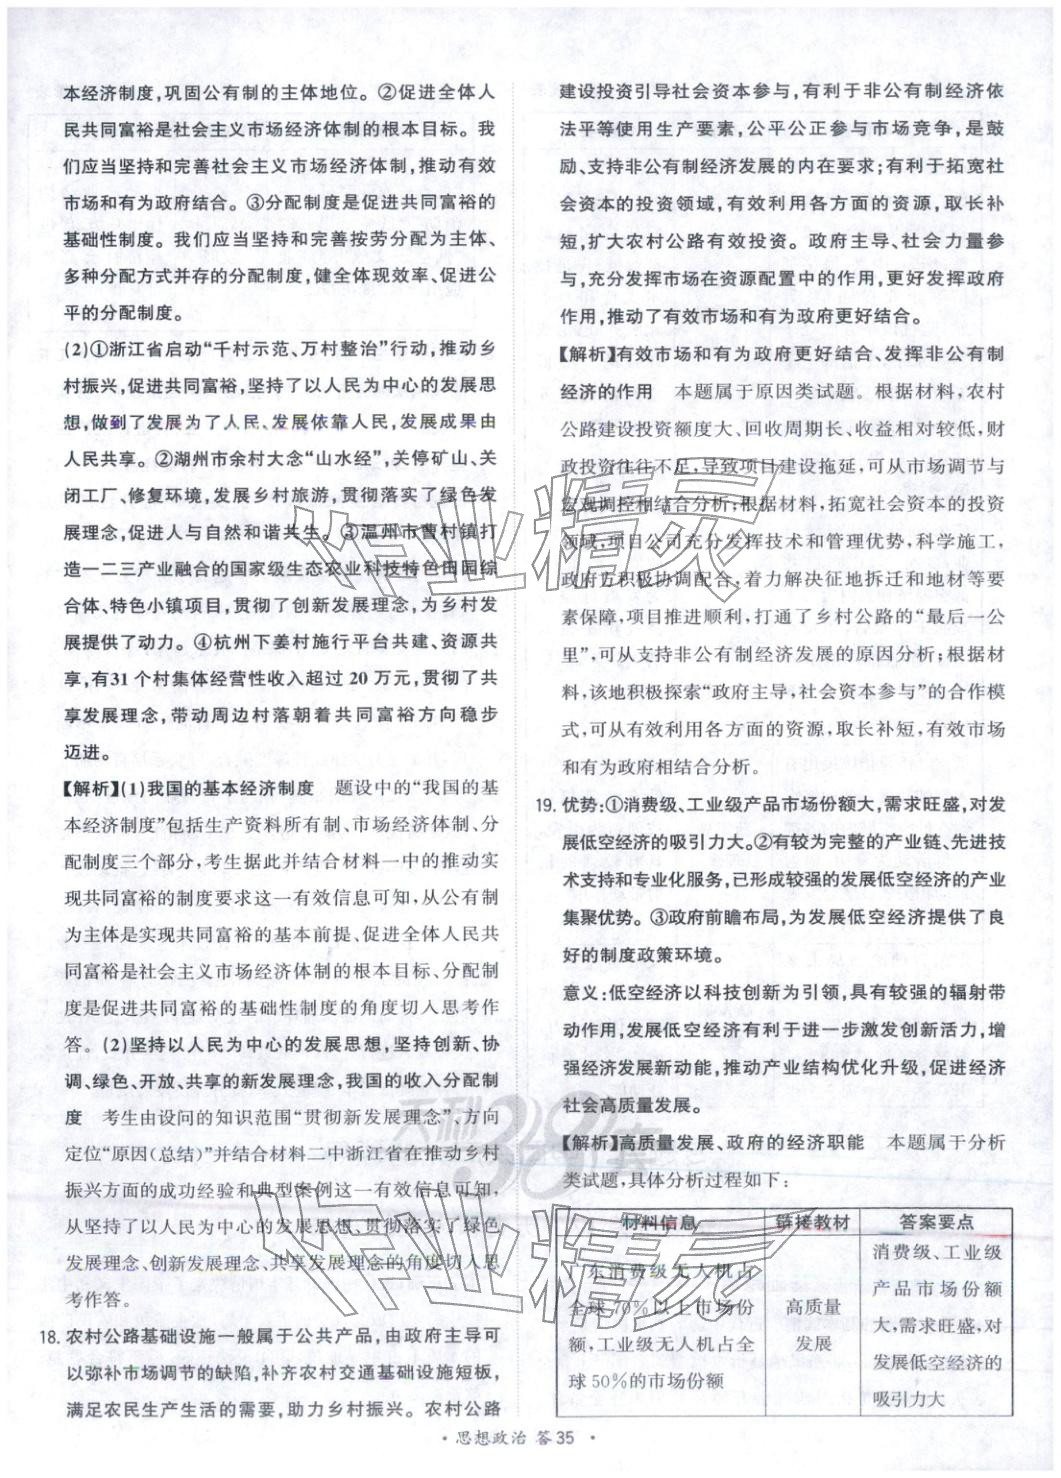 本经济制度,巩固公有制的主体地位。②促进全体人
民共同富裕是社会主义市场经济体制的根本目标。我
们应当坚持和完善社会主义市场经济体制,推动有效
市场和有为政府结合。③分配制度是促进共同富裕的
基础性制度。我们应当坚持和完善按劳分配为主体、
多种分配方式并存的分配制度,健全体现效率、促进公
平的分配制度。
(2)①浙江省启动“千村示范、万村整治”行动,推动乡
村振兴,促进共同富裕,坚持了以人民为中心的发展思
想,做到了发展为了人民、发展依靠人民,发展成果由
人民共享。②湖州市余村大念“山水经”,关停矿山、关
闭工厂、修复环境,发展乡村旅游,贯彻落实了绿色发
展理念,促进人与自然和谐共生。③温州市曹村镇打
造一二三产业融合的国家级生态农业科技特色田园综
合体、特色小镇项目,贯彻了创新发展理念,为乡村发
展提供了动力。④杭州下姜村施行平台共建、资源共
享,有31个村集体经营性收入超过20万元,贯彻了共
享发展理念,带动周边村落朝着共同富裕方向稳步
迈进。
【解析】(1)我国的基本经济制度 题设中的“我国的基
本经济制度”包括生产资料所有制、市场经济体制、分
配制度三个部分,考生据此并结合材料一中的推动实
现共同富裕的制度要求这一有效信息可知,从公有制
为主体是实现共同富裕的基本前提、促进全体人民共
同富裕是社会主义市场经济体制的根本目标、分配制
度是促进共同富裕的基础性制度的角度切入思考作
答。(2)坚持以人民为中心的发展思想,坚持创新、协
调、绿色、开放、共享的新发展理念,我国的收入分配制
度 考生由设问的知识范围“贯彻新发展理念”、方向
定位“原因(总结)”并结合材料二中浙江省在推动乡村
振兴方面的成功经验和典型案例这一有效信息可知,
从坚持了以人民为中心的发展思想、贯彻落实了绿色
发展理念、创新发展理念、共享发展理念的角度切入思
考作答。
18. 农村公路基础设施一般属于公共产品,由政府主导可
以弥补市场调节的缺陷,补齐农村交通基础设施短板,
满足农民生产生活的需要,助力乡村振兴。农村公路
建设投资引导社会资本参与,有利于非公有制经济依
法平等使用生产要素,公平公正参与市场竞争,是鼓
励、支持非公有制经济发展的内在要求;有利于拓宽社
会资本的投资领域,有效利用各方面的资源,取长补
短,扩大农村公路有效投资。政府主导、社会力量参
与,充分发挥市场在资源配置中的作用,更好发挥政府
作用,推动了有效市场和有为政府更好结合。
【解析】有效市场和有为政府更好结合、发挥非公有制
经济的作用 本题属于原因类试题。根据材料,农村
公路建设投资额度大、回收周期长、收益相对较低,财
政投资往往不足,导致项目建设拖延,可从市场调节与
宏观调控相结合分析;根据材料,拓宽社会资本的投资
领域,项目公司充分发挥技术和管理优势,科学施工,
政府方积极协调配合,着力解决征地拆迁和地材等要
素保障,项目推进顺利,打通了乡村公路的“最后一公
里”,可从支持非公有制经济发展的原因分析;根据材
料,该地积极探索“政府主导,社会资本参与”的合作模
式,可从有效利用各方面的资源,取长补短,有效市场
和有为政府相结合分析。
19. 优势:①消费级、工业级产品市场份额大,需求旺盛,对发
展低空经济的吸引力大。②有较为完整的产业链、先进技
术支持和专业化服务,已形成较强的发展低空经济的产业
集聚优势。③政府前瞻布局,为发展低空经济提供了良
好的制度政策环境。
意义:低空经济以科技创新为引领,具有较强的辐射带
动作用,发展低空经济有利于进一步激发创新活力,增
强经济发展新动能,推动产业结构优化升级,促进经济
社会高质量发展。
【解析】高质量发展、政府的经济职能 本题属于分析
类试题,具体分析过程如下:
材料信息 链接教材 答案要点
广东消费级无人机占
全球70%以上市场份
额,工业级无人机占全
球50%的市场份额
高质量
发展
消费级、工业级
产品市场份额
大,需求旺盛,对
发展低空经济的
吸引力大
·思想政治 答35·
作业精灵
作业精灵
天利38套